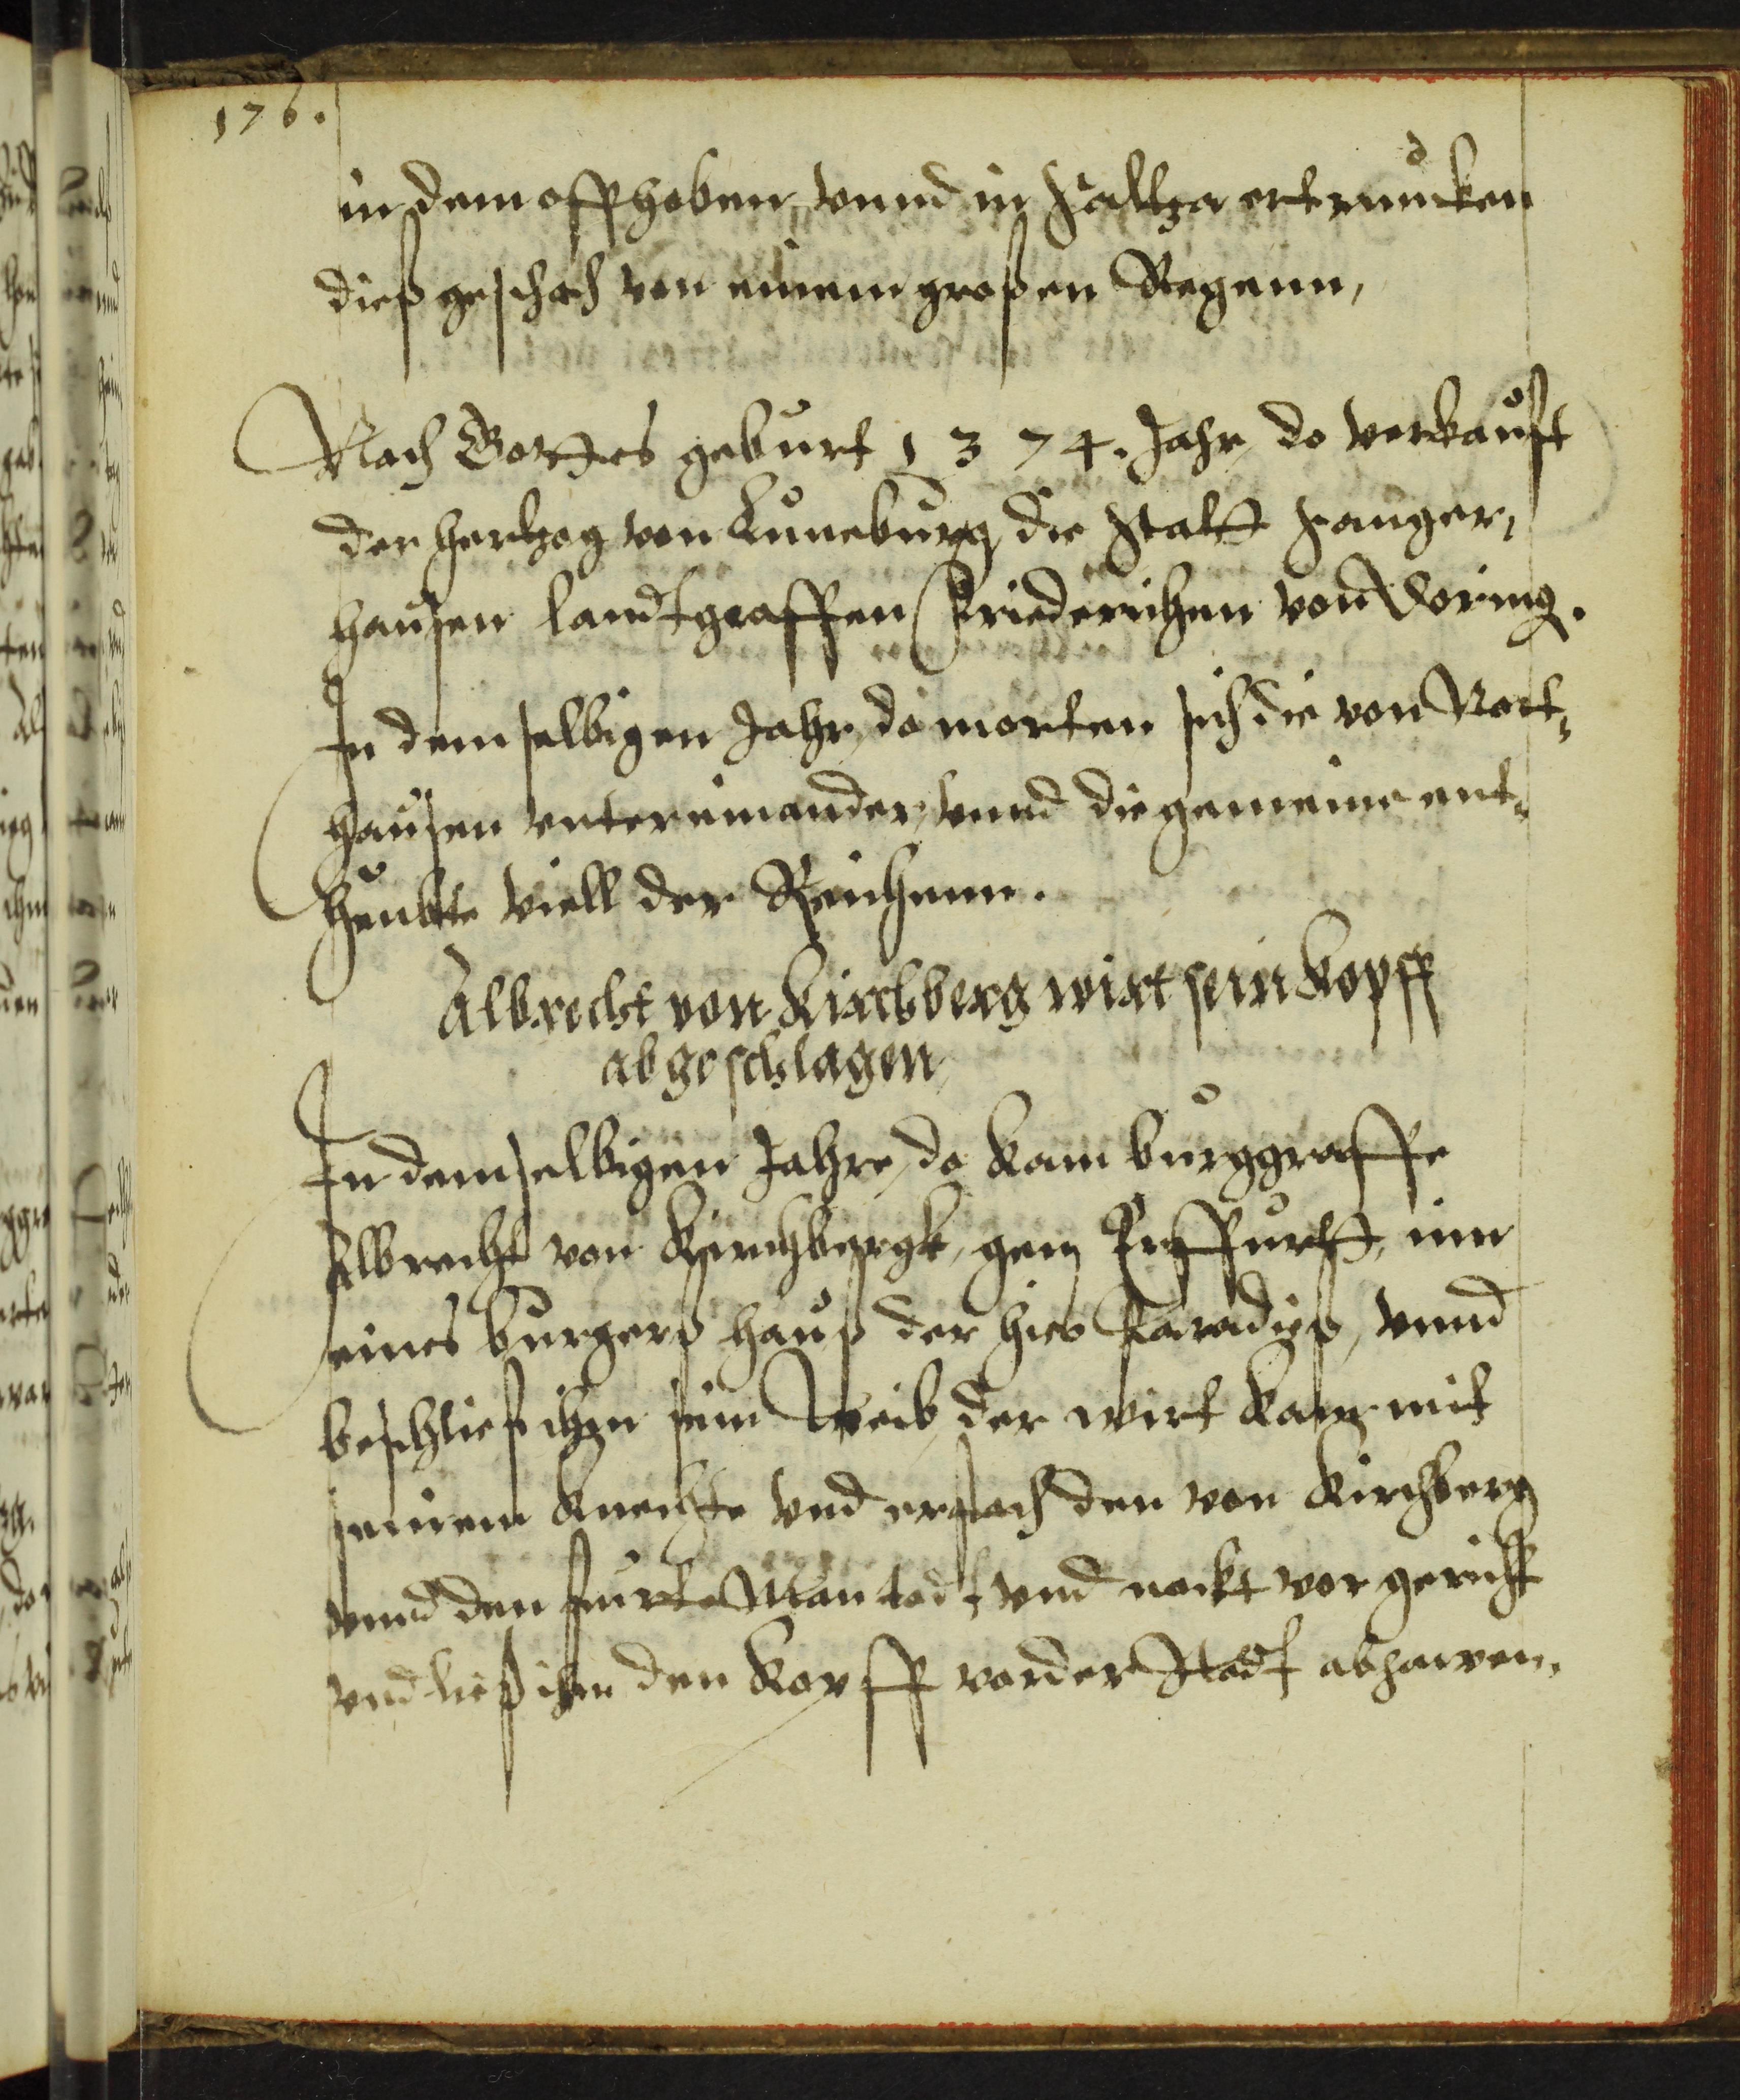 176.
in dem offhoben, vnnd in Saltza ertruncken
dieß geschah von einem großen Regenn,
Nach Gottes geburt 1374. Jahr, do verkaufft
der hertzog von Luneburg, die Statt Sanger,
hausen landtgraffen Friederichen von Doring.
In dem selbigen Jahr, do morten sich die von Nort,
hausen vntereinander, vnnd die gemeine ent,
heubte viell der Reichenn.
Albrecht von Kirchberg wirt sein Kopff
abgeschlagen,
In demselbigen Jahre, do kam burggraffe
Albrecht von Kirchbergk, gen Erffurtt, inn
eines burgers hauß der hies Paradiß, vnnd
beschlief ihm sein Weib, der wirt kam mit
seinem Knechte vnd erstach den von Kirchberg
vnnd den furte Man todt vnd nackt vor gericht
vnd ließ ihm den Kopff vor der Stadt abhawen,